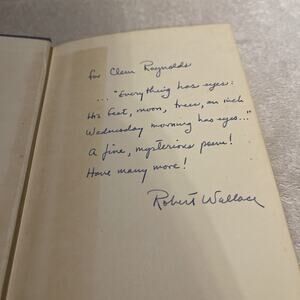 for Clem Reynolds
... "Everything has eyes:
His feet, moon, trees, an inch
Wednesday morning has eyes..."
A fine, mysterious poem!
Have many more!
Robert Wallace